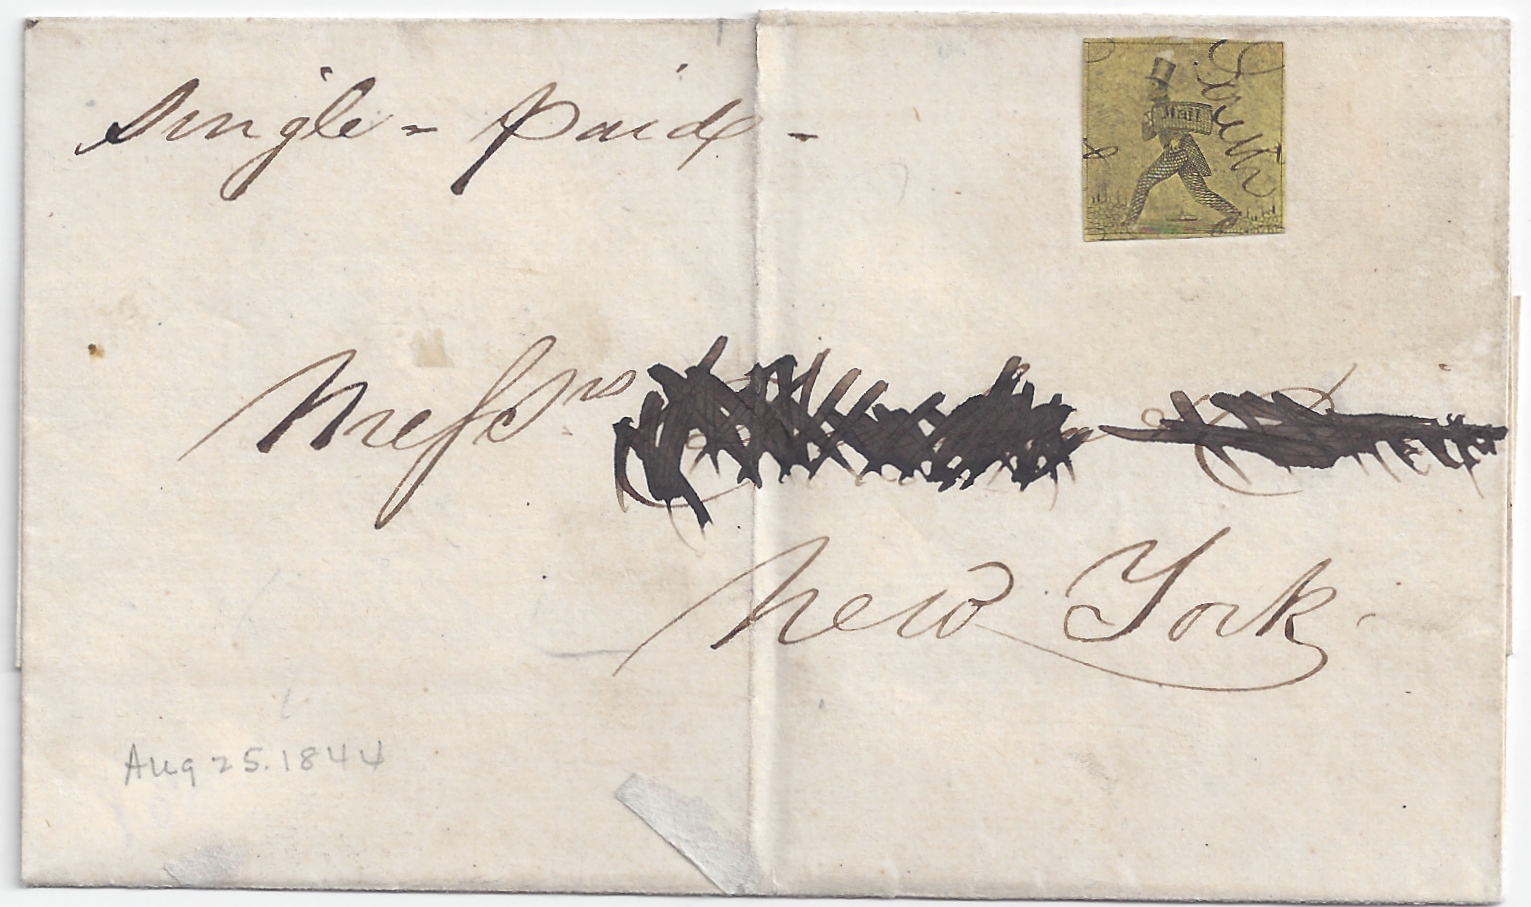 Single - Paid -
Mail
Smith
Messrs
New York
Aug 25. 1844